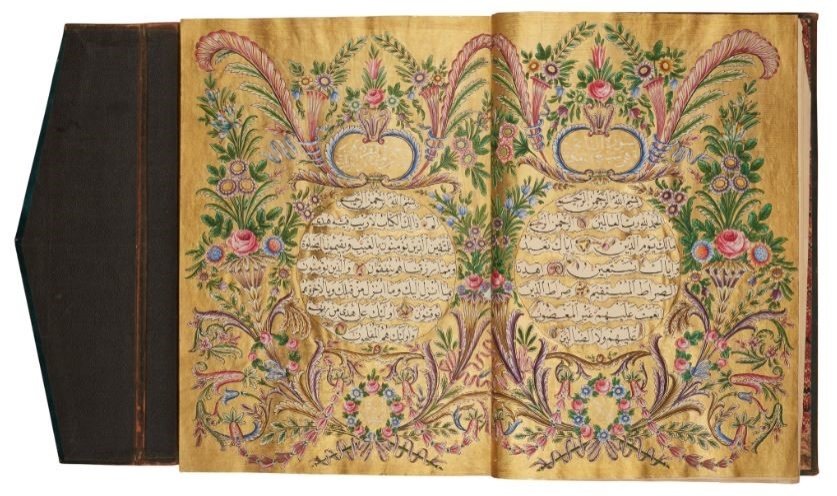 بسم الله الرحمن الرحيم
الحمد لله رب العالمين الرحمن
الرحيم مالك يوم الدين اياك نعبد
واياك نستعين اهدنا
الصراط المستقيم صراط الذين
انعمت عليهم غير المغضوب
عليهم ولا الضالين
بسم الله الرحمن الرحيم
الم ذلك الكتاب لا ريب فيه هدى
للمتقين الذين يؤمنون بالغيب ويقيمون الصلوة
ومما رزقناهم ينفقون والذين يؤمنون
بما انزل اليك وما انزل من قبلك وبالاخرة
هم يوقنون اولئك على هدى من ربهم
واولئك هم المفلحون